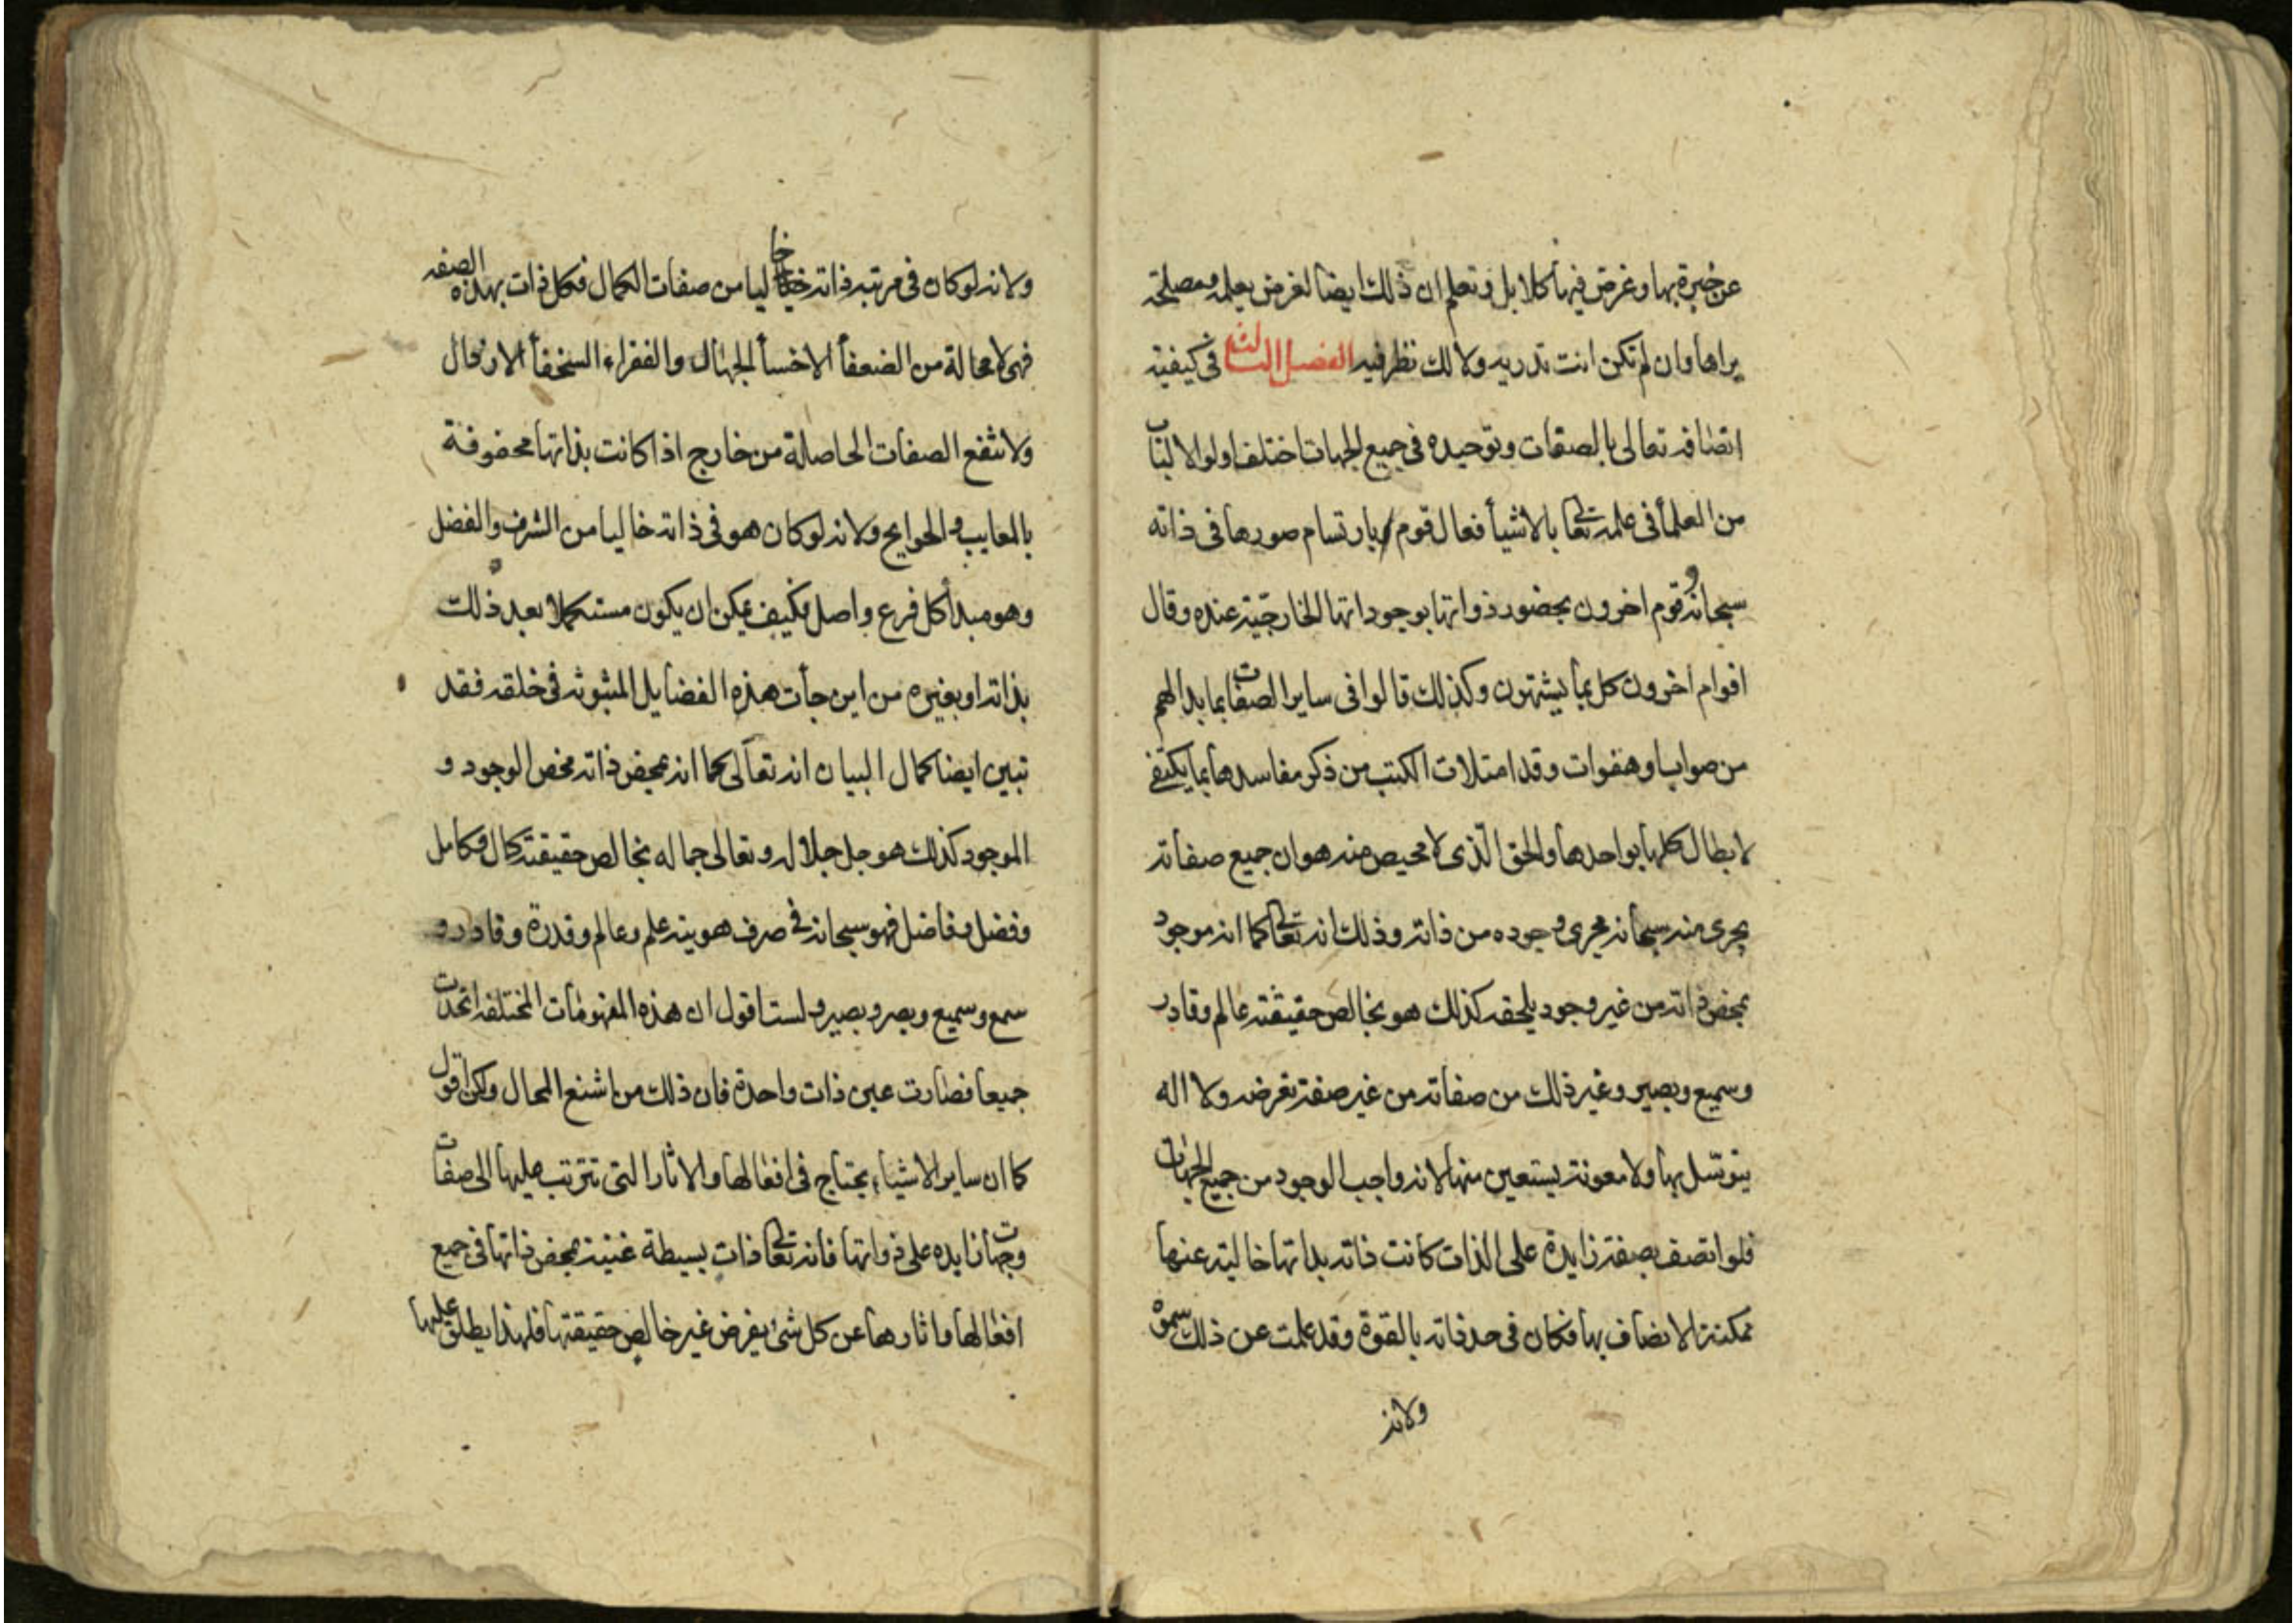 عن خبرة بها وغرض فيها كلا بل وتعلم ان ذلك ايضا لغرض يعلمه ومصلحة
يراها وان لم تكن انت تدريه ولا لك نظر فيه الفصل الثالث في كيفية
اتصافه تعالى بالصفات وتوحيده في جميع الجهات اختلف اولوا الالباب
من العلمأ في علمه تعالى بالاشيأ فقال قوم بارتسام صورها في ذاته
سبحانه وقوم اخرون بحضور ذواتها بوجوداتها الخارجية عنده وقال
اقوام اخرون كل بما يشتهون وكذلك قالوا في ساير الصفات بما بدا لهم
من صواب او هفوات وقد امتلات الكتب من ذكر مفاسدها بما يكتفى
لابطال كلها بواحدها والحق الذى لا محيص منه هو ان جميع صفاته
يجرى منه سبحانه مجرى وجوده من ذاته وذلك انه تعالى كما انه موجود
بمحض ذاته من غير وجود يلحقه كذلك هو بخالص حقيقته عالم وقادر
وسميع وبصير وغير ذلك من صفاته من غير صفة تعرضه ولا اله
يتوسل بها ولا معونة يستعين منها لانه واجب الوجود من جميع الجهات
فلو اتصف بصفة زايدة على الذات كانت ذاته بذاتها خالية عنها
ممكنة الاتصاف بها فكان في حد ذاته بالقوة وقد علمت عن ذلك سموه
ولانه
ولانه لو كان في مرتبه ذاته خاليا من صفات الكمال فكل ذات بهذه الصفه
فهى لا محالة من الضعفأ الاخسأ الجهال والفقراء السخفأ الارذال
ولا تنفع الصفات الحاصلة من خارج اذا كانت بذاتها محفوفة
بالمعايب والحوايج ولانه لو كان هو في ذاته خاليا من الشرف والفضل
وهو مبدأ كل فرع واصل فكيف يمكن ان يكون مستكملا بعد ذلك
بذاته او بغيره من اين جأت هذه الفضايل المبثوثه في خلقه فقد
تبين ايضا كمال البيان انه تعالى كما انه بمحض ذاته محض الوجود و
الموجود كذلك هو جل جلاله وتعالى جماله بخالص حقيقته كمال وكامل
وفضل وفاضل فهو سبحانه في صرف هويته علم وعالم وقدرة وقادر و
سمع وسميع وبصر وبصير ولست اقول ان هذه المفهومات المختلفه اتحدت
جميعا فصارت عين ذات واحدة فان ذلك من اشنع المحال ولكن اقول
كما ان ساير الاشياء يحتاج في افعالها والاثار التى تترتب عليها الى صفات
وجهات زايده على ذواتها فانه تعالى ذات بسيطة غنية بمحض ذاتها في جميع
افعالها واثارها عن كل شئ يفرض غير خالص حقيقتها فلهذا يطلق عليها